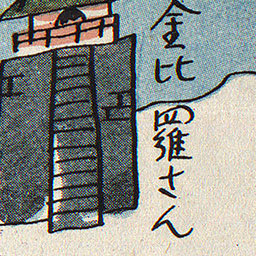 金比羅さん